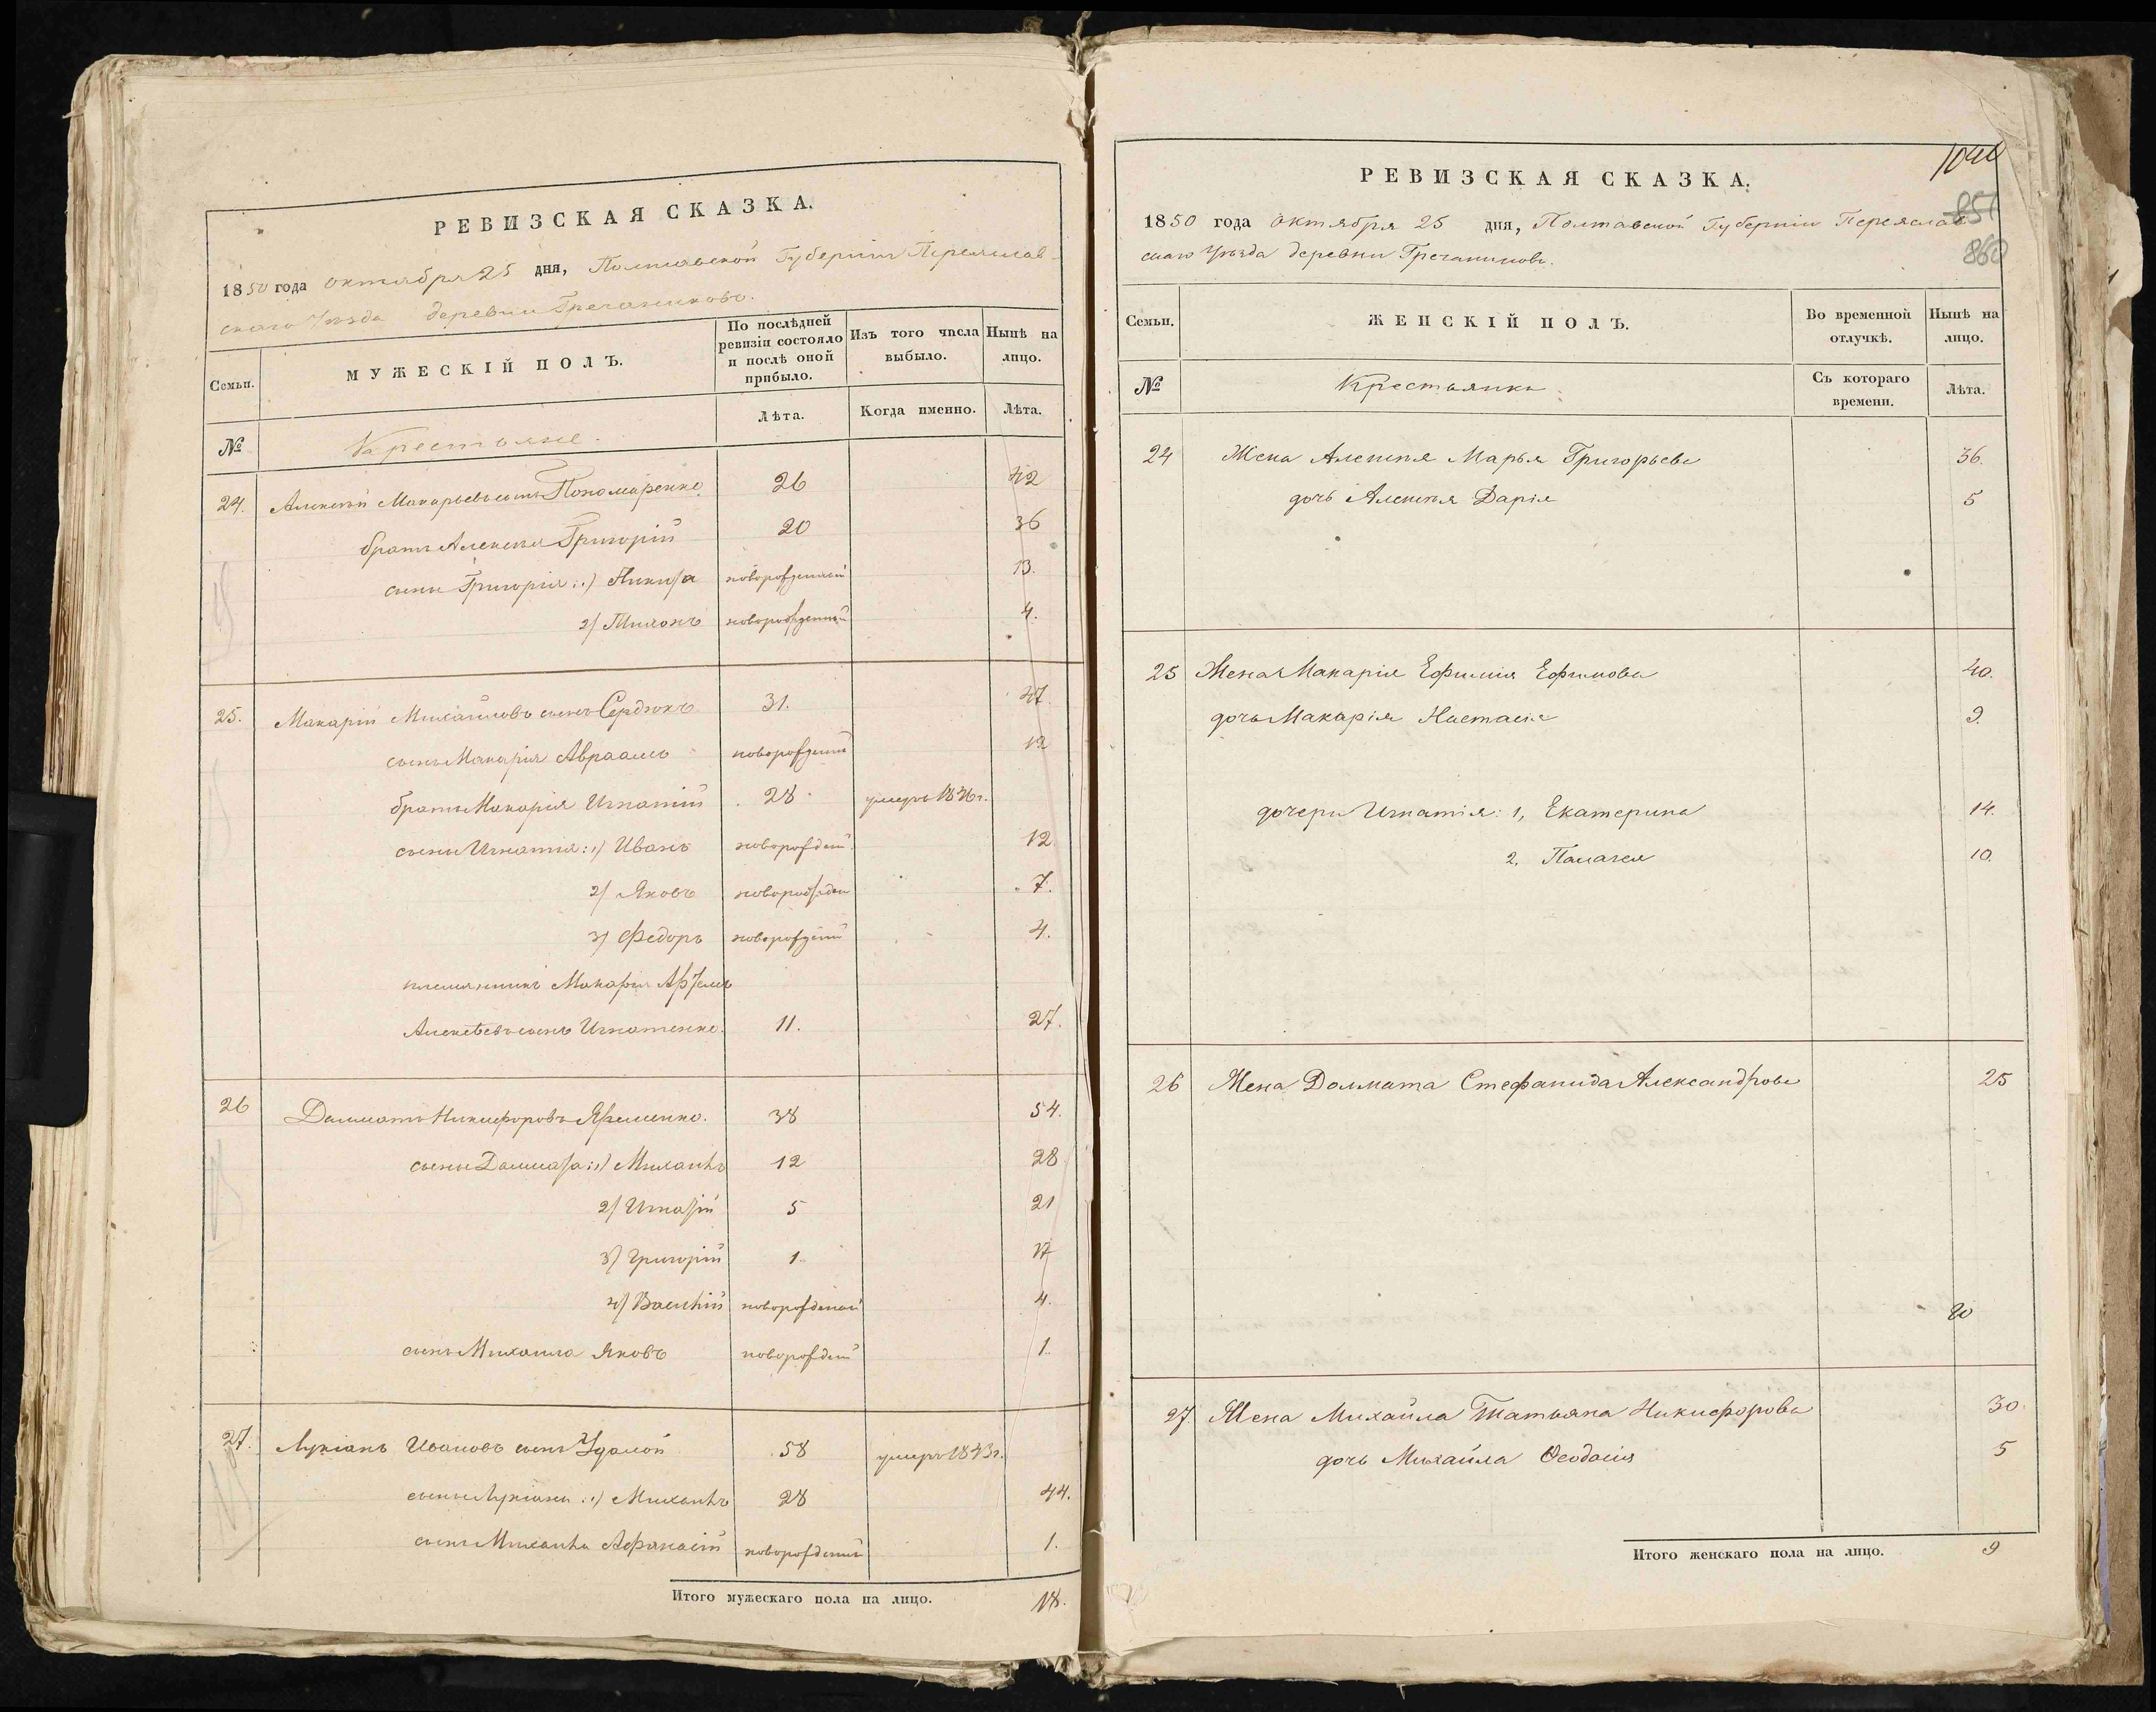 РЕВИЗСКАЯ СКАЗКА.
1850 года октября 25 дня, Полтавской Губерніи Переяслав-
скаго Уѣзда деревни Гречаниково.
Семьи.
МУЖЕСКІЙ ПОЛЪ.
По послѣдней ревизіи состояло и послѣ оной прибыло.
Изъ того числа выбыло.
Нынѣ на лицо.
№
Крестьяне.
Лѣта.
Когда именно.
Лѣта.
24. Алексѣй Макарьевъ сынъ Пономаренко 26 42
братъ Алексѣя Григорій 20 36
сыны Григорія: 1) Никита новорожденный 13.
2) Тихонъ новорожденный 4.
25. Макарій Михайловъ сынъ Сердюкъ 31. 47
сынъ Макарія Авраамъ новорожденный 12
братъ Макарія Игнатій 28 умеръ 1846 г.
сыны Игнатія: 1) Иванъ новорожден. 12
2) Яковъ новорожден 7.
3) Федоръ новорожденый 4.
племянникъ Макарія Артемъ
Алексѣевъ сынъ Игнатенко. 11. 27.
26 Далматъ Никифоровъ Яременко. 38 54.
сыны Далмата: 1) Михаилъ 12 28
2) Игнатій 5 21
3) Григорій 1. 17
4) Василій новорожденный 4.
сынъ Михаила Яковъ новорожденый 1.
27. Лукіанъ Ивановъ сынъ Удалой 58 умеръ 1843 г.
сыны Лукіана: 1) Михаилъ 28 44.
сынъ Михаила Афанасій новорожденный 1.
Итого мужескаго пола на лицо. 18.
РЕВИЗСКАЯ СКАЗКА.
851
860
1850 года октября 25 дня, Полтавской Губерніи Переяслав
скаго Уѣзда деревни Гречаниково.
Семьи.
ЖЕНСКІЙ ПОЛЪ.
Во временной отлучкѣ.
Нынѣ на лицо.
№
Крестьянки
Съ котораго времени.
Лѣта.
24 Жена Алексѣя Марья Григорьева 36.
дочь Алексѣя Дарія 5
25 Жена Макарія Ефимія Ефимова 40.
дочь Макарія Настасія 9.
дочери Игнатія: 1, Екатерина 14.
2, Палагея 10.
26 Жена Долмата Стефанида Александрова 25
27. Жена Михайла Татьяна Никифорова 30.
дочь Михайла Ѳеодосія 5
Итого женскаго пола на лицо. 9